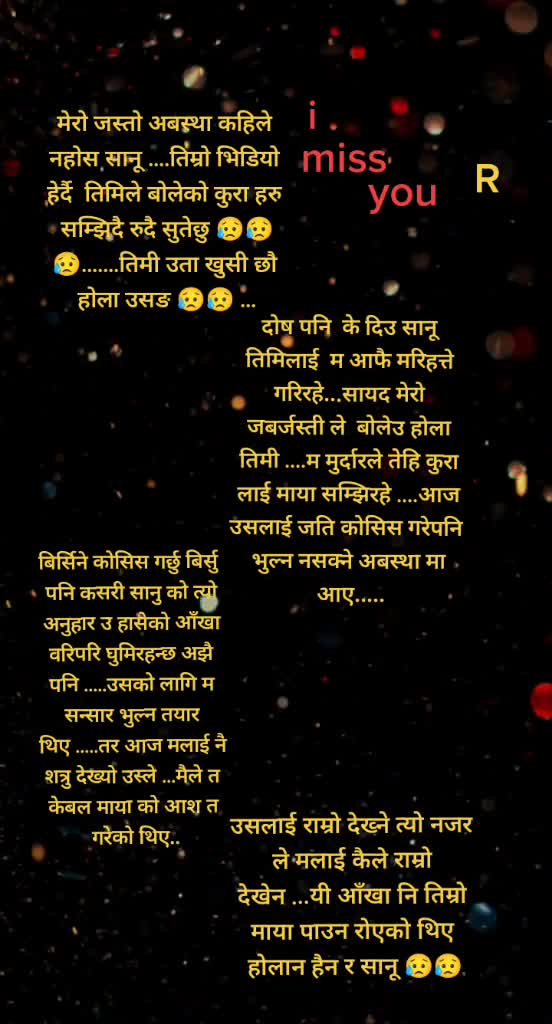 मेरो जस्तो अबस्था कहिले
नहोस सानू ....तिम्रो भिडियो
हेर्दै तिमिले बोलेको कुरा हरु
सम्झिदै रुदै सुतेछु 😥😥
😥.......तिमी उता खुसी छौ
होला उसङ 😥😥 ...
i
miss
you
R
दोष पनि के दिउ सानू
तिमिलाई म आफै मरिहत्ते
गरिरहे...सायद मेरो
जबर्जस्ती ले बोलेउ होला
तिमी ....म मुर्दारले तेहि कुरा
लाई माया सम्झिरहे ....आज
उसलाई जति कोसिस गरेपनि
भुल्न नसक्ने अबस्था मा
आए.....
बिर्सिने कोसिस गर्छु बिर्सु
पनि कसरी सानु को त्यो
अनुहार उ हासेको आँखा
वरिपरि घुमिरहन्छ अझै
पनि .....उसको लागि म
सन्सार भुल्न तयार
थिए .....तर आज मलाई नै
शत्रु देख्यो उस्ले ...मैले त
केबल माया को आश त
गरेको थिए..
उसलाई राम्रो देख्ने त्यो नजर
ले मलाई कैले राम्रो
देखेन ...यी आँखा नि तिम्रो
माया पाउन रोएको थिए
होलान हैन र सानू 😥😥